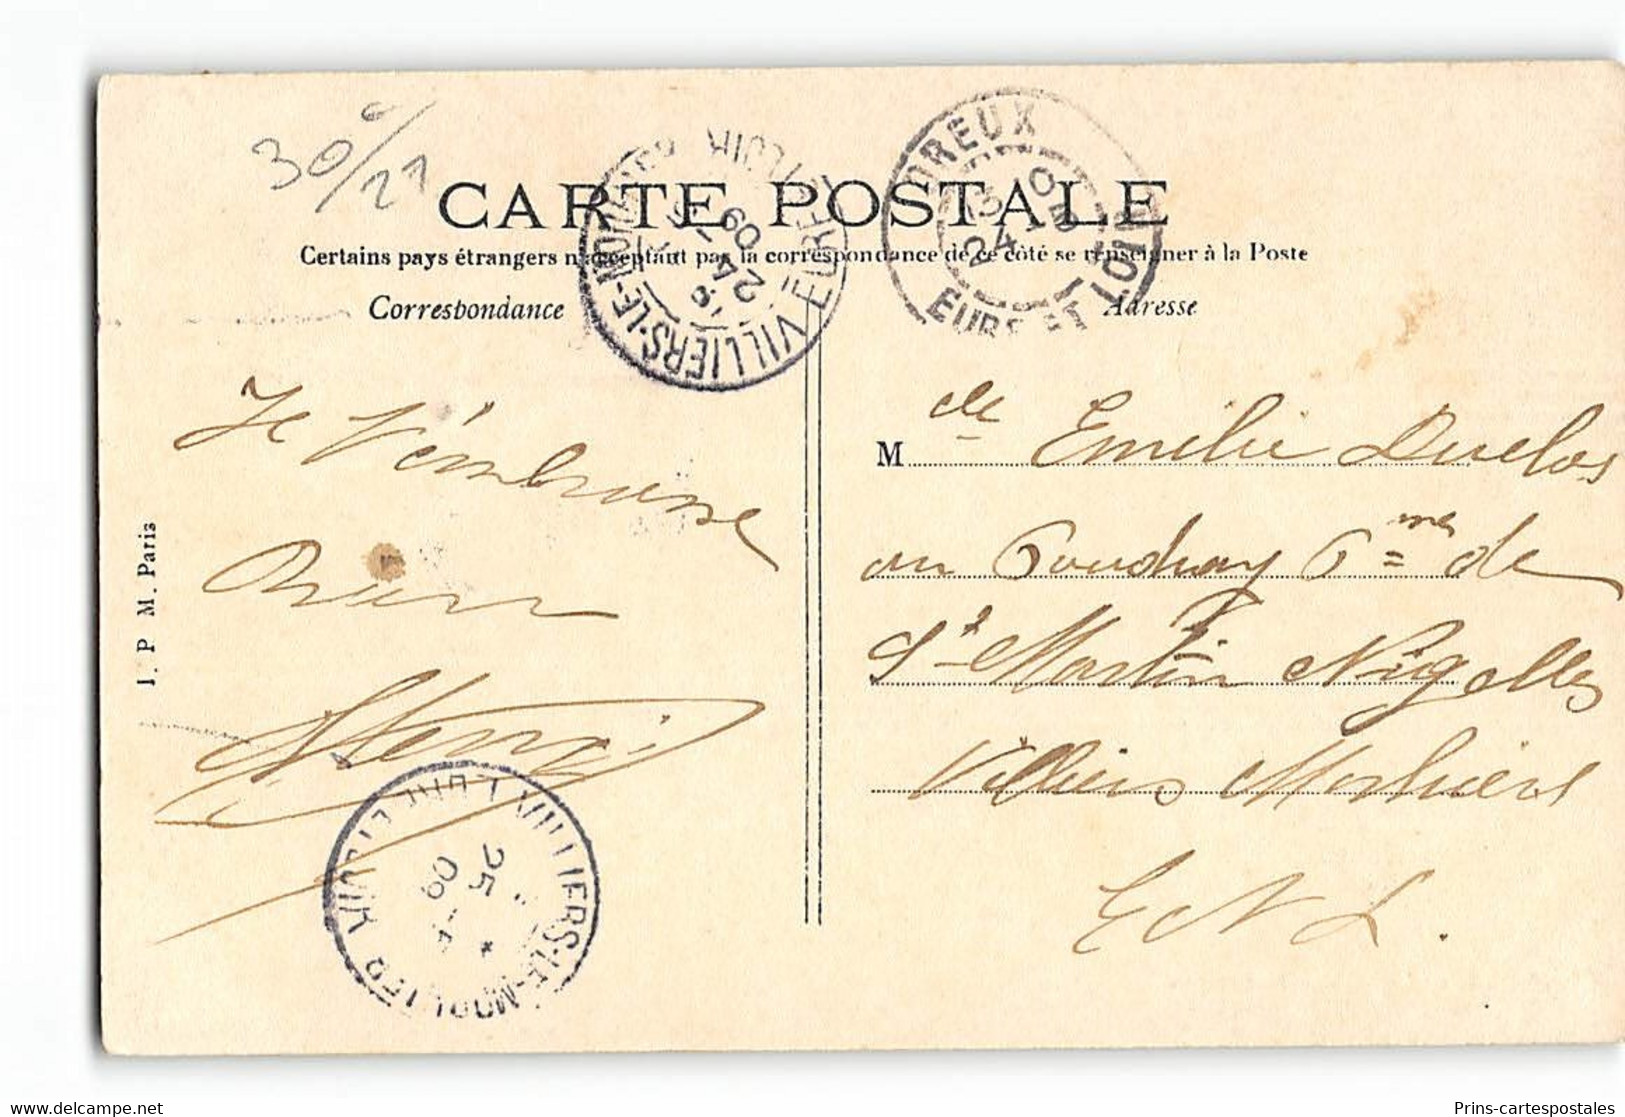 30€/21
CARTE POSTALE
Certains pays étrangers n'acceptant pas la correspondance de ce côté se renseigner à la Poste
Correspondance
Adresse
VILLIERS-LE-MORHIER EURE-ET-LOIR
24 -7
09
DREUX
EURE ET LOIR
24
09
Je t'embrasse
bien
Henri
M elle Emilie Duclos
au Coudray Cme de
St Martin Nigelles
Villiers Morhiers
E & L.
I. P. M. Paris
VILLIERS-LE-MORHIER EURE-ET-LOIR
25 -7
09
Prins-cartespostales